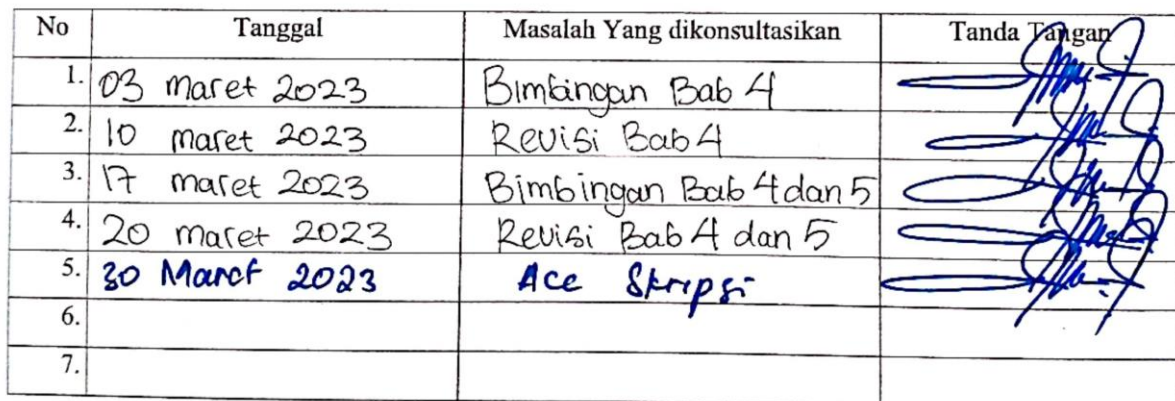 No Tanggal Masalah Yang dikonsultasikan Tanda Tangan
1. 03 maret 2023 Bimbingan Bab 4
2. 10 maret 2023 Revisi Bab 4
3. 17 maret 2023 Bimbingan Bab 4 dan 5
4. 20 maret 2023 Revisi Bab 4 dan 5
5. 30 Maret 2023 Acc Skripsi
6.
7.